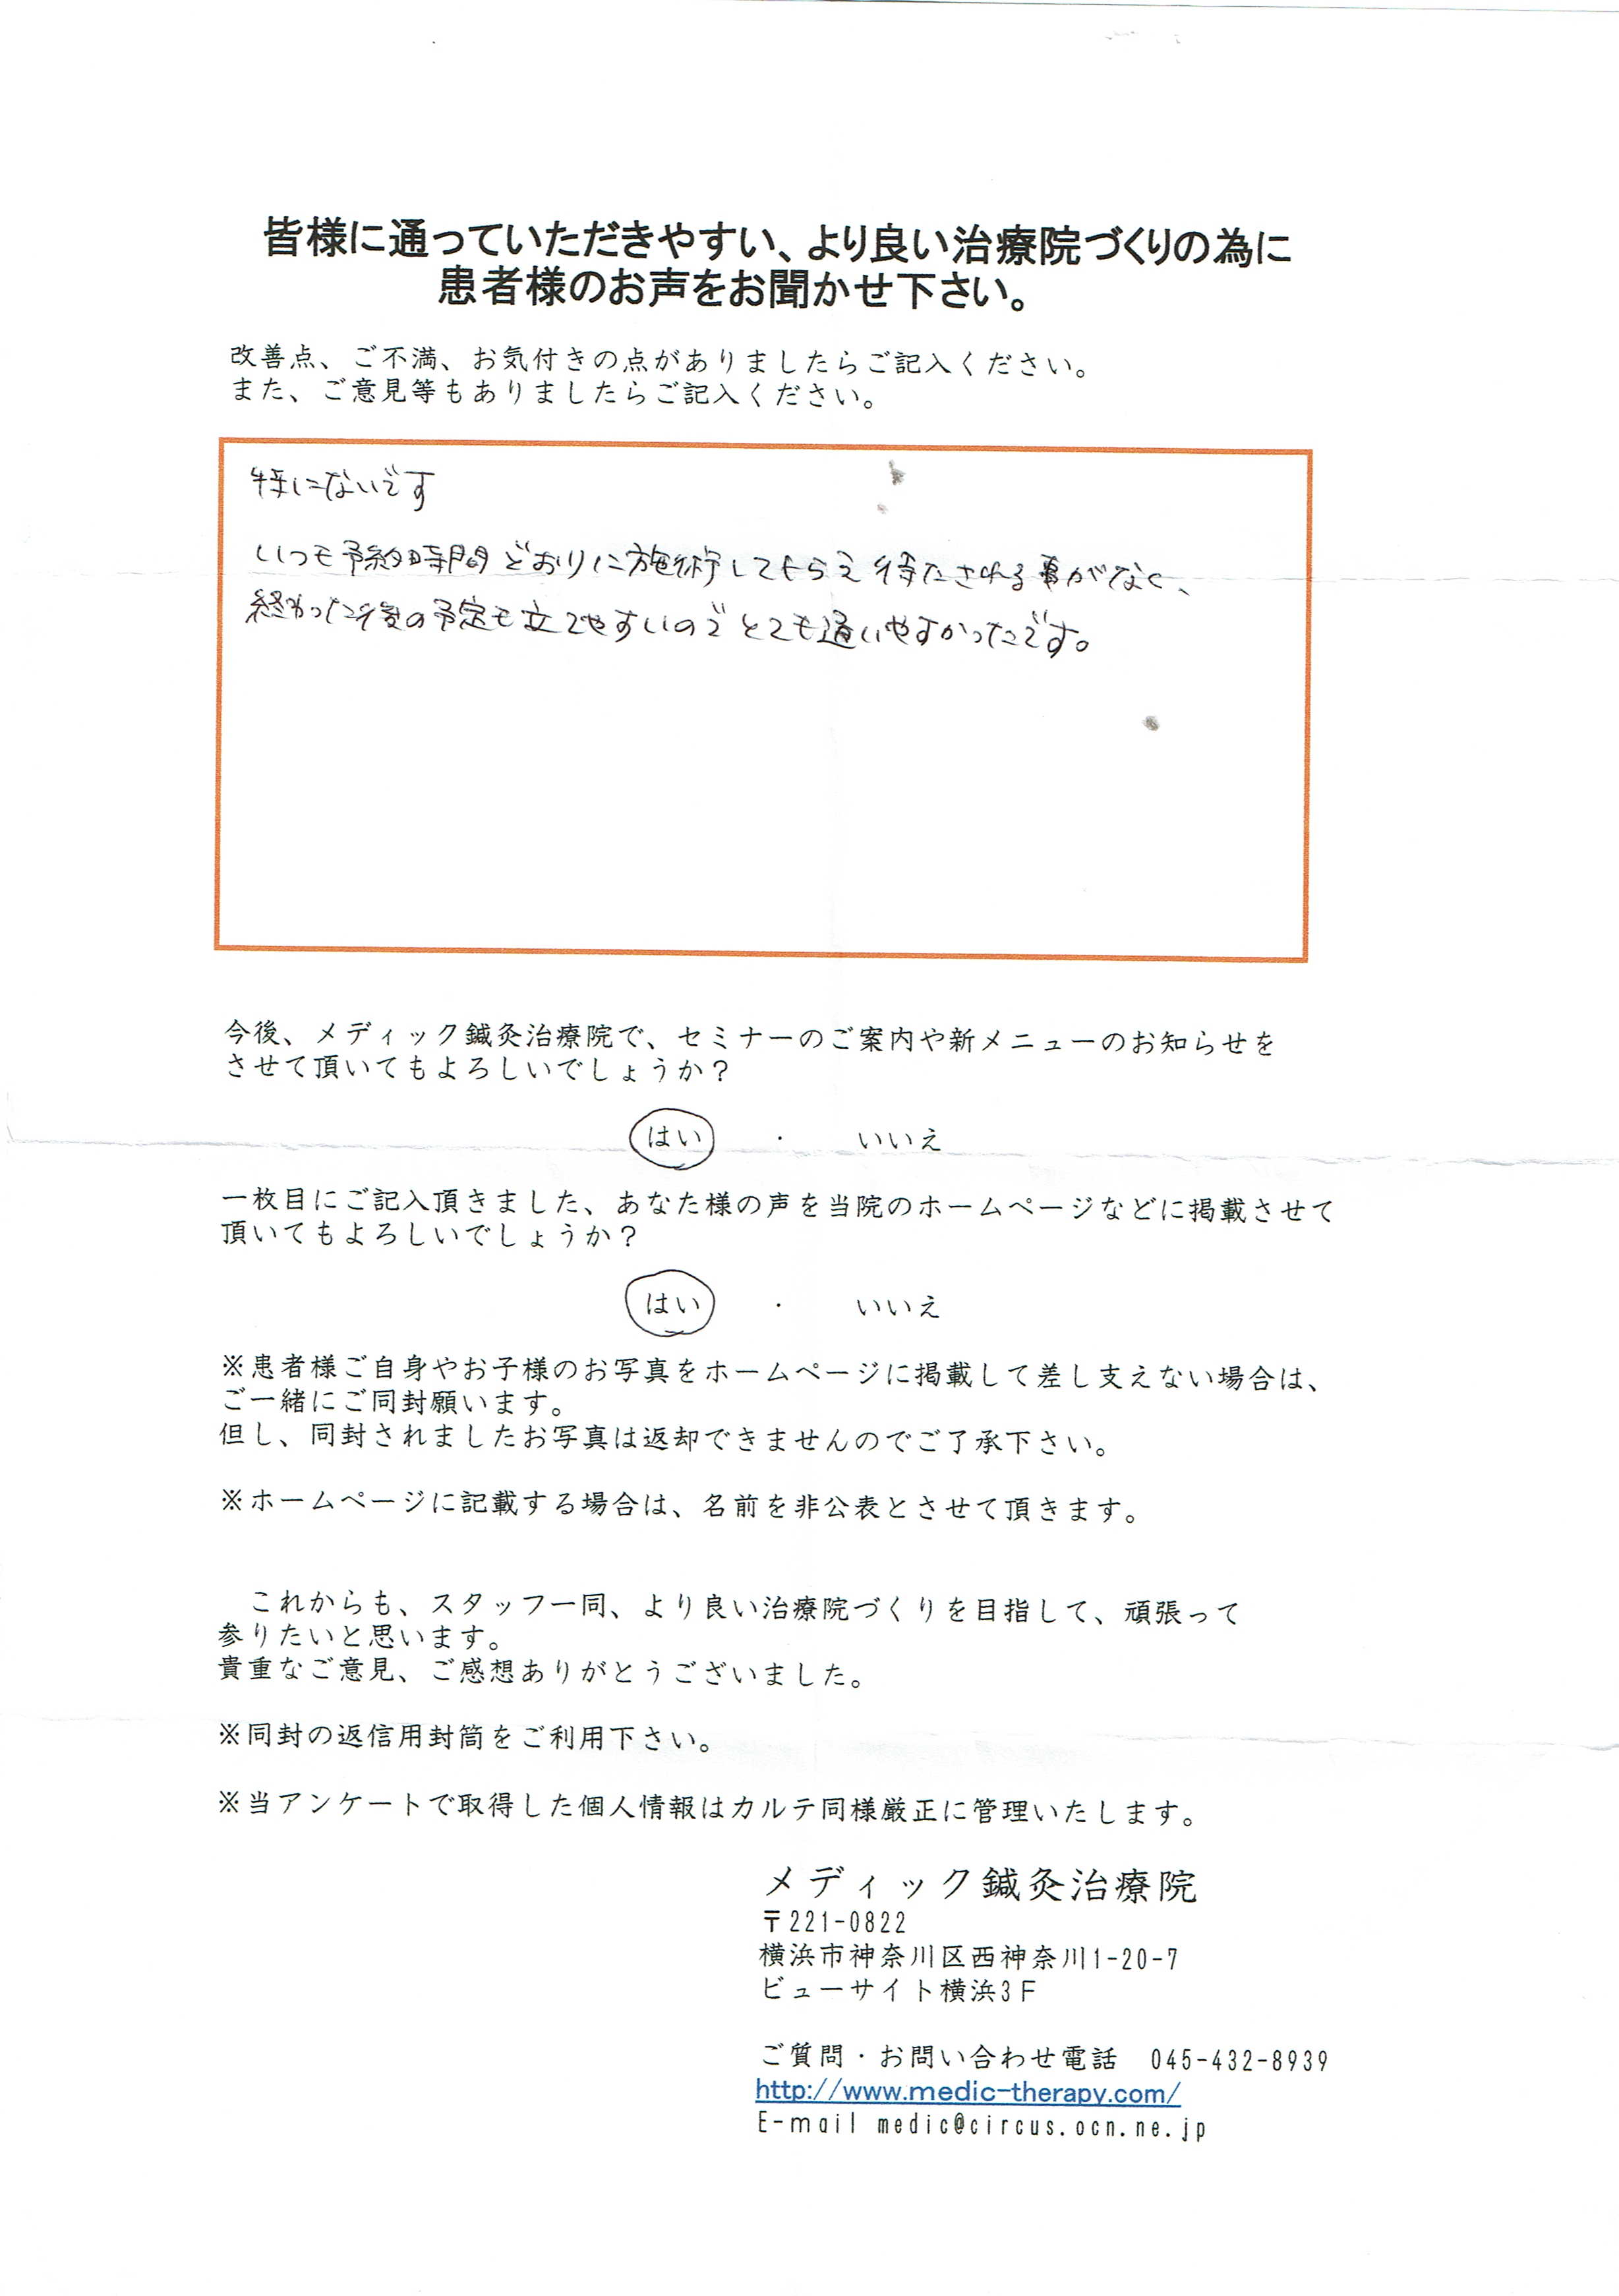 皆様に通っていただきやすい、より良い治療院づくりの為に
患者様のお声をお聞かせ下さい。
改善点、ご不満、お気付きの点がありましたらご記入ください。
また、ご意見等もありましたらご記入ください。
特にないです
いつも予約時間どおりに施術してもらえ待たされる事がなく、
終わった後の予定も立てやすいのでとても通いやすかったです。
今後、メディック鍼灸治療院で、セミナーのご案内や新メニューのお知らせを
させて頂いてもよろしいでしょうか？
はい ・ いいえ
一枚目にご記入頂きました、あなた様の声を当院のホームページなどに掲載させて
頂いてもよろしいでしょうか？
はい ・ いいえ
※患者様ご自身やお子様のお写真をホームページに掲載して差し支えない場合は、
ご一緒にご同封願います。
但し、同封されましたお写真は返却できませんのでご了承下さい。
※ホームページに記載する場合は、名前を非公表とさせて頂きます。
これからも、スタッフ一同、より良い治療院づくりを目指して、頑張って
参りたいと思います。
貴重なご意見、ご感想ありがとうございました。
※同封の返信用封筒をご利用下さい。
※当アンケートで取得した個人情報はカルテ同様厳正に管理いたします。
メディック鍼灸治療院
〒221-0822
横浜市神奈川区西神奈川1-20-7
ビューサイト横浜3F
ご質問・お問い合わせ電話 045-432-8939
http://www.medic-therapy.com/
E-mail medic@circus.ocn.ne.jp